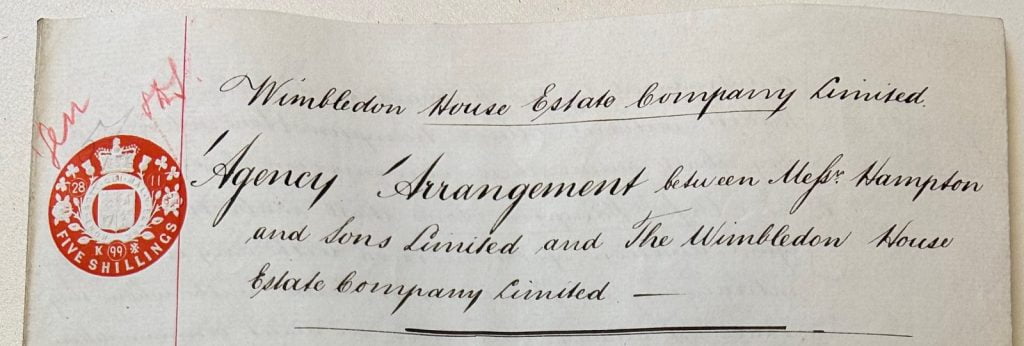 Wimbledon House Estate Company Limited.
Agency Arrangement between Messrs. Hampton
and Sons Limited and The Wimbledon House
Estate Company Limited —
28 11
K 99
FIVE SHILLINGS